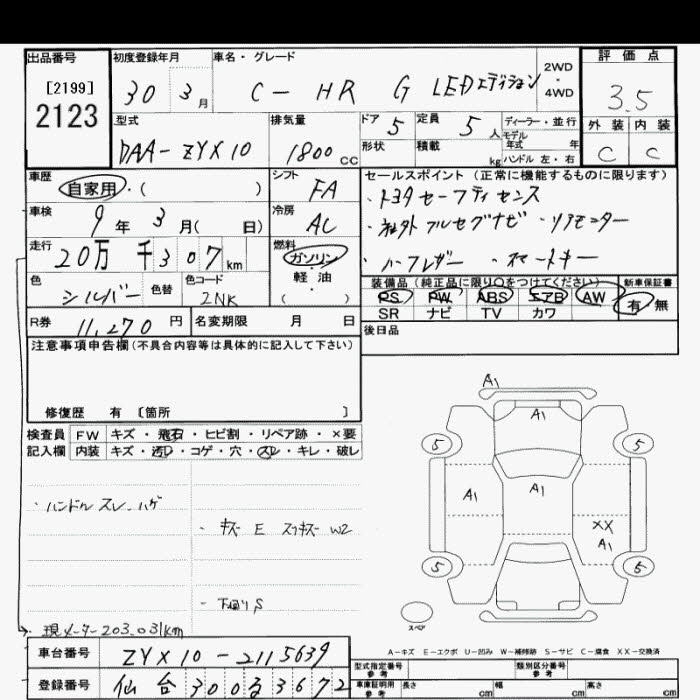 出品番号
[2199]
2123
初度登録年月
30 3月
車名・グレード
C-HR G LEDエディション
2WD
・
4WD
評価点
3.5
外装 内装
C C
型式
DAA-ZYX10
排気量
1800cc
ドア 5
形状
定員 5人
積載 kg
ディーラー・並行
モデル年式 年
ハンドル 左・右
車歴
自家用・( )
シフト
FA
車検
9年3月( 日)
冷房
AC
走行
20万 千307km
燃料
ガソリン・
軽油・
( )
色
シルバー
色替
色コード
2NK
セールスポイント(正常に機能するものに限ります)
・トヨタセーフティセンス
・社外フルセグナビ ・リアモニター
・ハーフレザー ・スマートキー
装備品(純正品に限り○をつけてください)
PS PW ABS エアB AW
SR ナビ TV カワ
新車保証書
有 無
R券 11,270円
名変期限 月 日
後日品
注意事項申告欄(不具合内容等は具体的に記入して下さい)
修復歴 有 〔箇所 〕
検査員
記入欄
FW キズ・飛石・ヒビ割・リペア跡・×要
内装 キズ・汚れ・コゲ・穴・スレ・キレ・破レ
・ハンドル スレ、ハゲ
・キズ E スリキズ W2
・下廻りS
・現メーター203,031km
A1
A1
5 5
A1 A1
XX
A1
5 5
スペア
A-キズ E-エクボ U-凹み W-補修跡 S-サビ C-腐食 XX-交換済
車台番号 ZYX10-2115639
登録番号 仙台300る3672
型式指定番号
参考
類別区分番号
参考
車庫証明用
参考
長さ cm 幅 cm 高さ cm